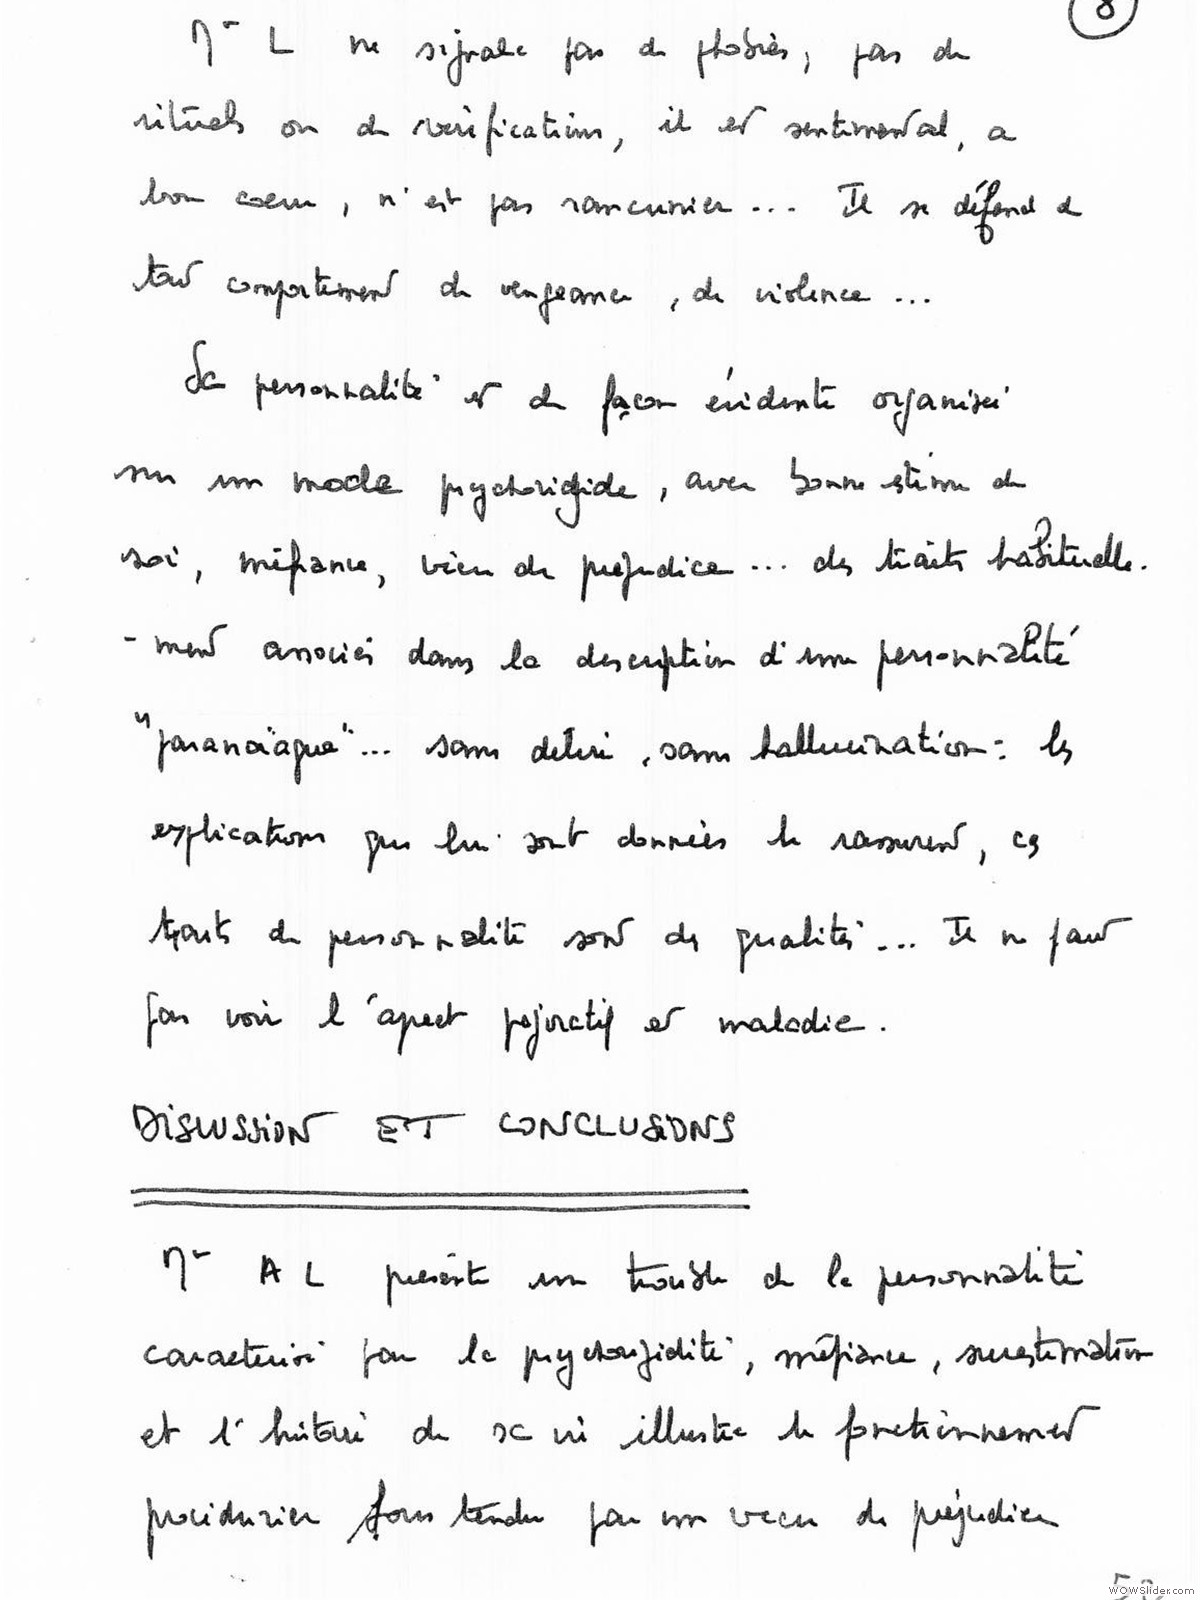 8
Mr L ne signale pas de phobies, pas de
rituels ou de vérifications, il est sentimental, a
bon coeur, n'est pas rancunier... Il se défend de
tout comportement de vengeance, de violence...
Sa personnalité est de façon évidente organisée
sur un mode psychorigide, avec bonne estime de
soi, méfiance, vécu de préjudice... des traits habituelle.
-ment associés dans la description d'une personnalité
"paranoïaque"... sans délire, sans hallucination: les
explications qui lui sont données le rassurent, ces
traits de personnalité sont des qualités... Il ne faut
pas voir l'aspect péjoratif et maladie.
DISCUSSION ET CONCLUSIONS
Mr A L présente un trouble de la personnalité
caractérisé par la psychorigidité, méfiance, surestimation
et l'histoire de sa vie illustre le fonctionnement
procédurier sous tendu par un vécu de préjudice
WOWSlider.com